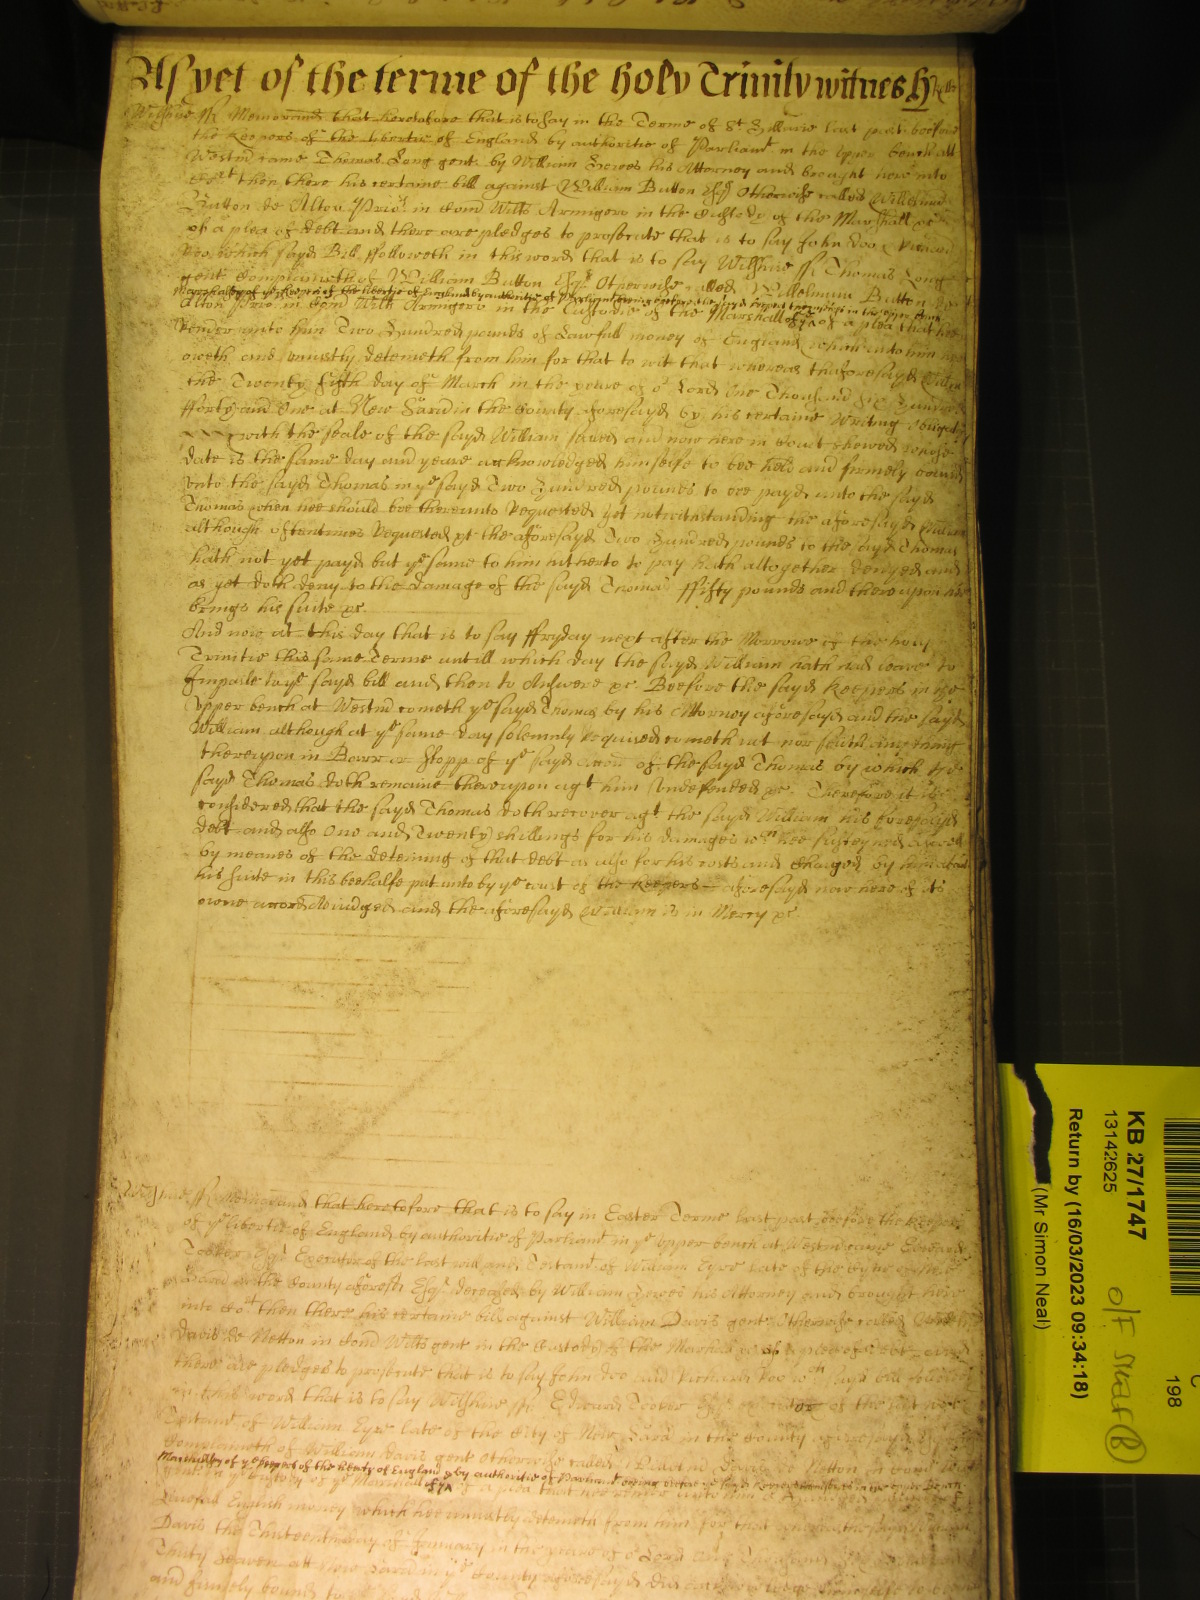 As yet of the terme of the holy Trinity witnes H Rolle
Wiltshire ss Memorand that heretofore that is to say in the Terme of St Hillarie last past before
the Keepers of the libertie of England by authoritie of Parliamt in the upper bench att
Westmr came Thomas Long gent by William his Attorney and brought here into
Court then there his certaine bill against William Button Esqr Otherwise called Willelmus
Button de Alton Prio in Com Wilts Armigero in the Custody of the Marshall &c
of a plea of debt and there are pledges to prosecute that is to say John Doo & Richard
Roo which sayd Bill followeth in this word that is to say Wilshire ss Thomas Longe
gent complaineth of William Button Esqr Otherwise called Willelmum Button de
Marshalsey of ye keepers of the libertie of England by authoritie of Parliament being before the sayd keepers in the upper bench
Alton Prio in Com Wilts Armigero in the Custodie of the Marshall of ye of a plea that hee
Render unto him Two Hundred pounds of Lawfull money of England which unto him hee
oweth and uniustly deteineth from him for that to wit that whereas the aforesayd William
the Twenty fifth day of March in the yeare of or Lord One Thousand Six Hundred
fforty and One at New Sarū in the County aforesayd by his certaine Writing obligatory
with the seale of the sayd William sealed and now here in Court shewed whose
date is the same day and yeare acknowledged himselfe to bee held and firmely bound
unto the sayd Thomas in ye sayd Two Hundred pounds to bee payd unto the sayd
Thomas when hee should bee thereunto Requested yet notwithstanding the aforesayd William
although oftentimes Requested &c the aforesayd Two Hundred pounds to the sayd Thomas
hath not yet payd but ye same to him hitherto to pay hath altogether denyed and
as yet doth deny to the damage of the sayd Thomas ffifty pounds and thereupon hee
brings his suite &c
And now at this day that is to say ffryday next after the Morrowe of the holy
Trinitie this same Terme untill which day the sayd William hath had leave to
Imparle to ye sayd bill and then to Answere &c Beefore the sayd Keepers in the
upper bench at Westmr cometh ye sayd Thomas by his Attorney aforesayd and the sayd
William although at ye same day solemnly required cometh not nor saieth any thing
thereupon in Barr or stopp of ye sayd accon of the sayd Thomas by which the
sayd Thomas doth remaine thereupon agt him Undefended &c Therefore it is
considered that the sayd Thomas doth recover agt the sayd William his foresayd
debt and also One and Twenty shillings for his damages wch hee susteyned aswell
by meanes of the deteining of that debt as also for his costs and Charges by him about
his suite in this beehalfe put unto by ye court of the keepers aforesayd now here of its
owne accord Adiudged and the aforesayd William is in Mercy &c
ss Memorand that heretofore that is to say in Easter Terme last past before the keepers
of ye libertie of England by authoritie of Parliamt in ye upper bench at Westmr came Edward
Tooker Esqr Executor of the last will and Testamt of William Eyre late of the Cytie of New
Sarū in the County aforesd Esqr deceased by William his Attorney and brought here
into Cort then there his certaine bill against William Davis gent Otherwise called
Davis de Netton in Com Wilts gent in the Custody of the Marshall &c of a plea of debt and
there are pledges to prosecute that is to say John Doo and Richard Roo wch sayd bill followeth
in this word that is to say Wilshire ss Edward Tooker Esqr executor of the last will
Testamt of William Eyre late of the City of New Sarū in the County aforesayd
Complaineth of William Davis gent otherwise called Davis de Netton in Com Wilts
Marshalsey of ye keepers of the liberty of England by authoritie of Parliamt being before ye sayd keepers in ye upper bench
gent in ye Custody of ye Marshall of ye of a plea that hee render unto him a Hundred
Lawfull English money which hee uniustly deteineth from him for that
Davis the Thirteenth day of January in the yeare of or Lord One Thousand Six Hundred
Thirty Seaven att New Sarū in ye County aforesayd did
and firmely bound to
KB 27/1747
13142625
Return by (16/03/2023 09:34:18)
(Mr Simon Neal)
198